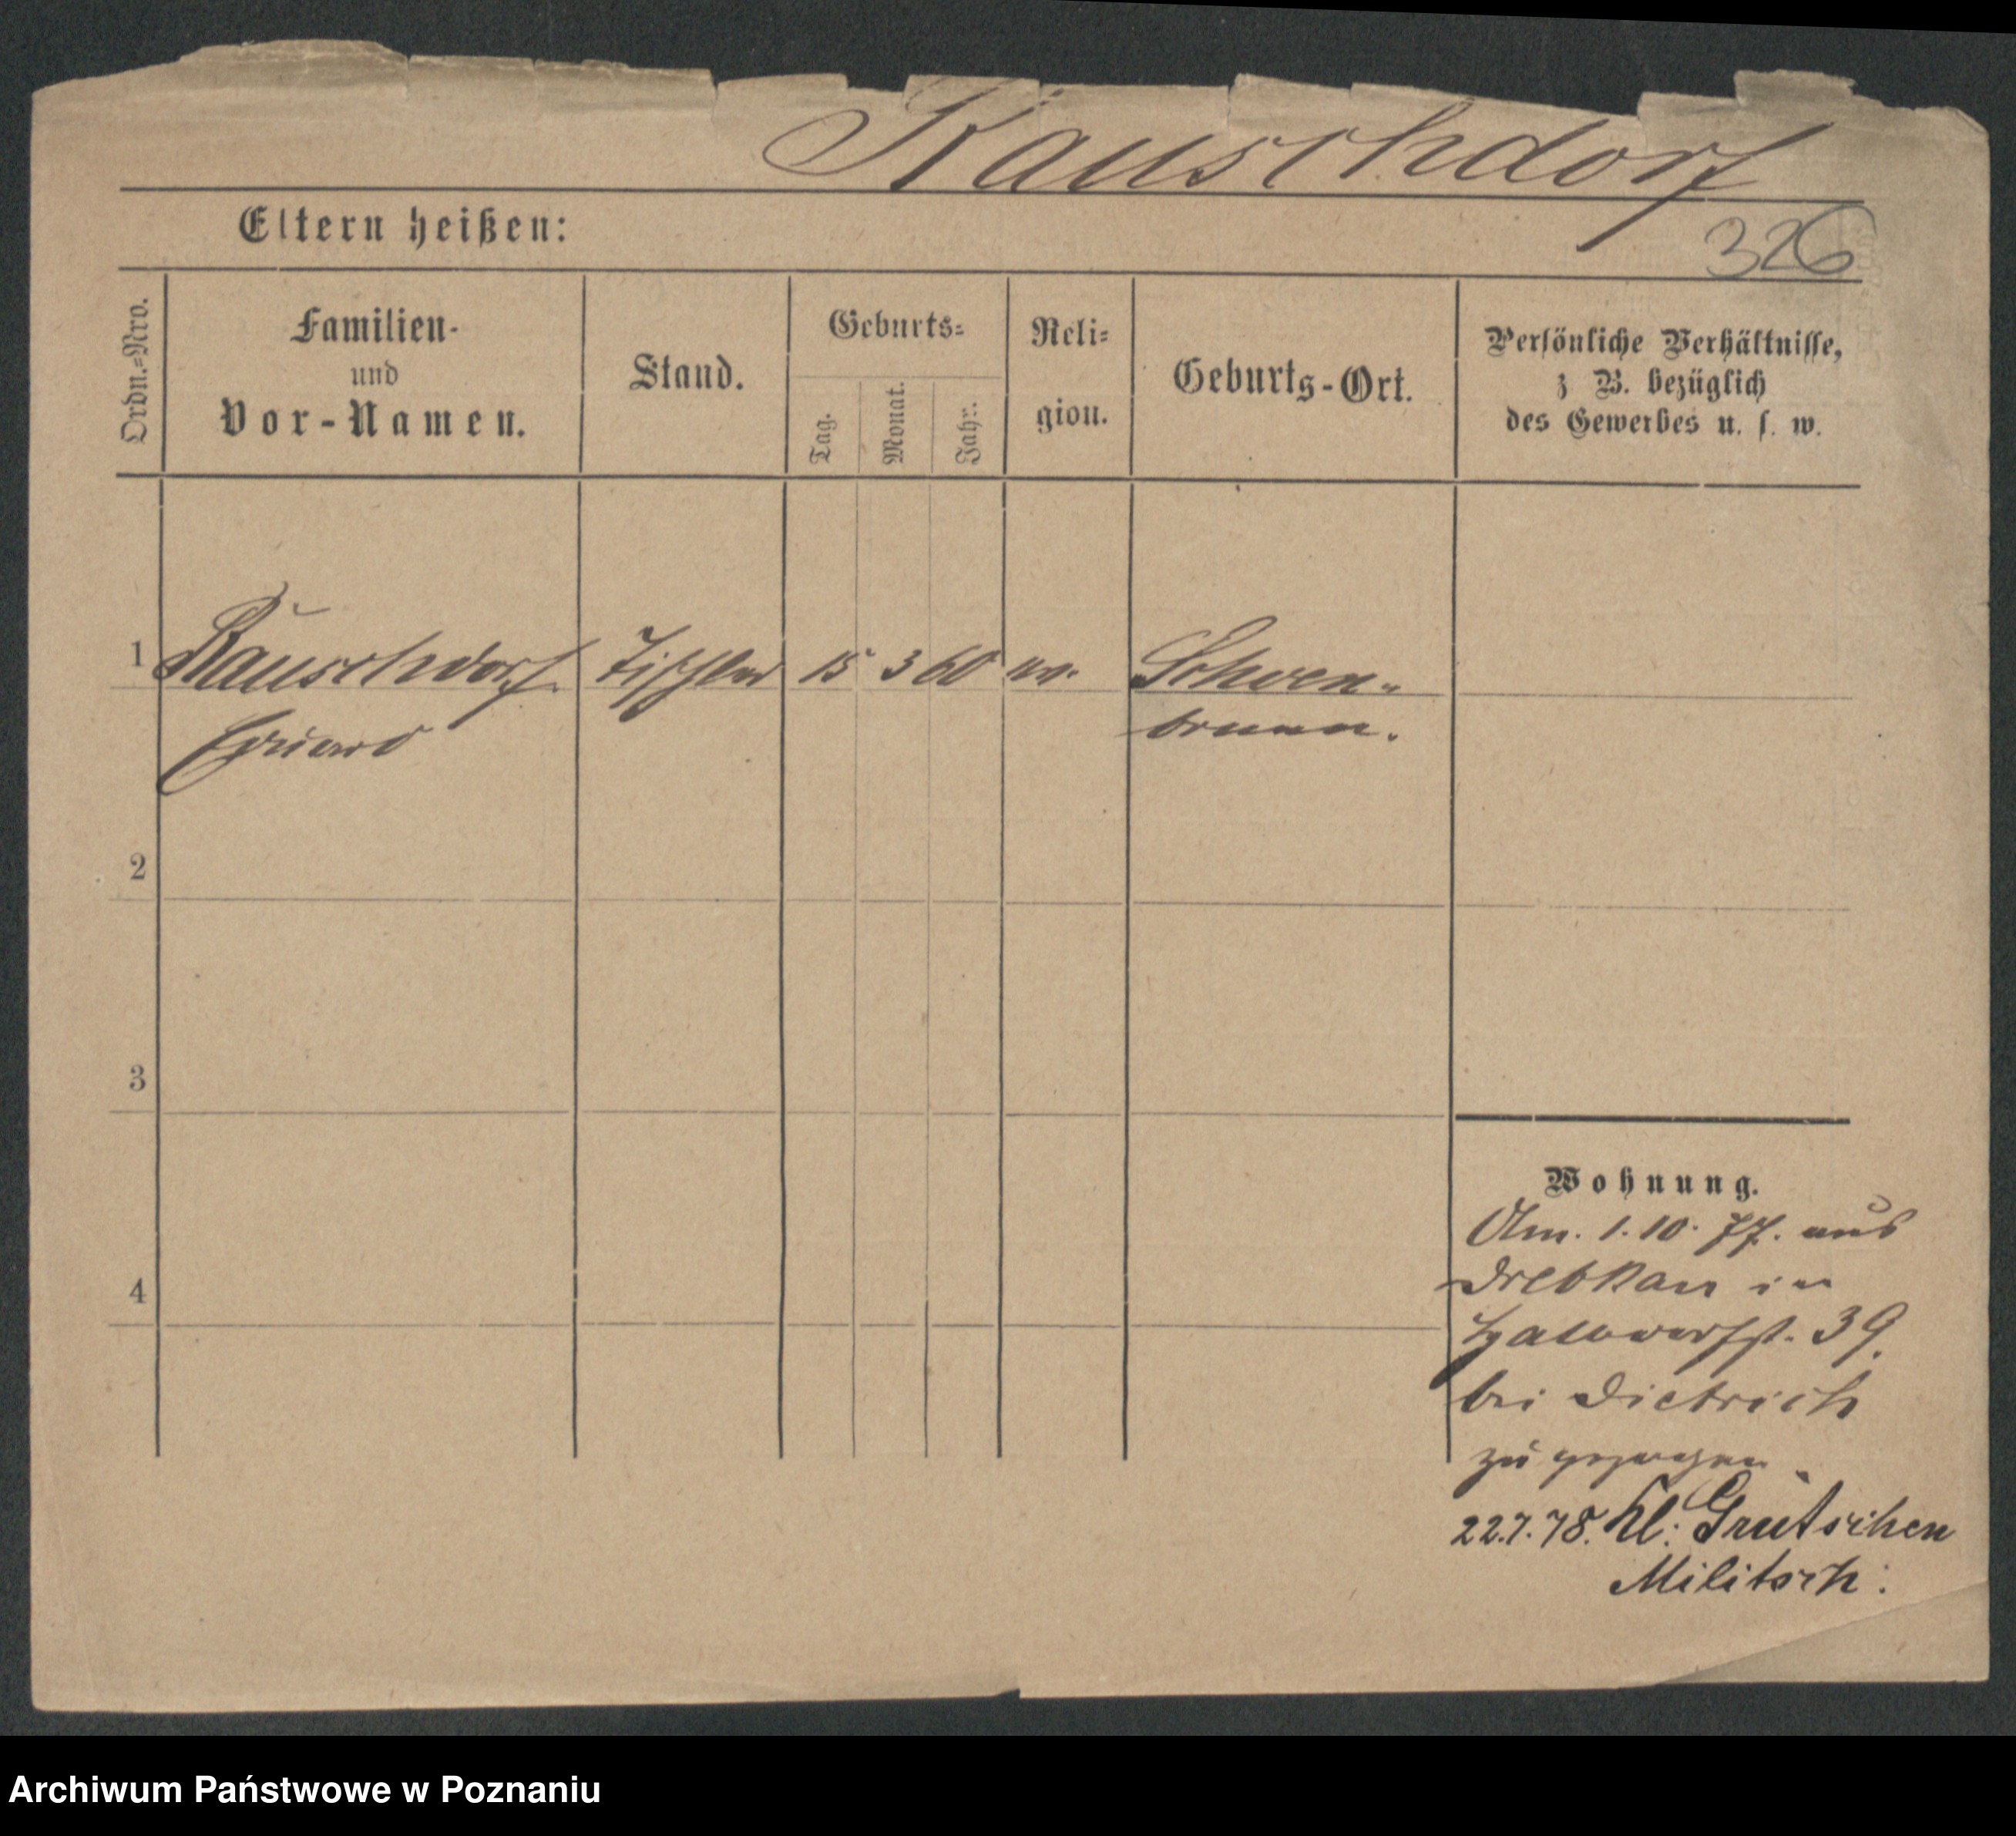 Rauschdorf
Eltern heißen:
326
Ordn.=Nro.
Familien-
und
Vor-Namen.
Stand.
Geburts=
Tag.
Monat.
Jahr.
Reli=
gion.
Geburts-Ort.
Persönliche Verhältnisse,
z B. bezüglich
des Gewerbes u. s. w.
1 Rauschdorf Tischler 15 3 60 ev. Schoen-
Eduard brunn.
2
3
4
Wohnung.
Am. 1.10.77. aus
Drebkau in
Halbdorfst. 39.
bei Dietrich
zu gezogen.
22.7.78. Kl: Grütschen
Militsch.
Archiwum Państwowe w Poznaniu